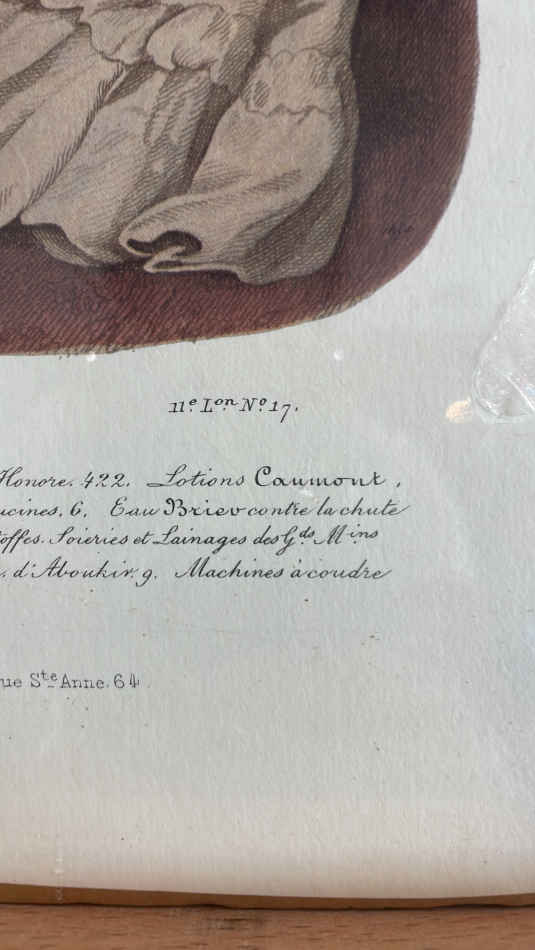 11e. Lon No. 17.
Honore. 422. Lotions Caumont,
ucines, 6, Eau Briev contre la chute
toffes. Soieries et Lainages des Gds Mins
d'Aboukir. 9. Machines à coudre
ue Ste Anne. 64